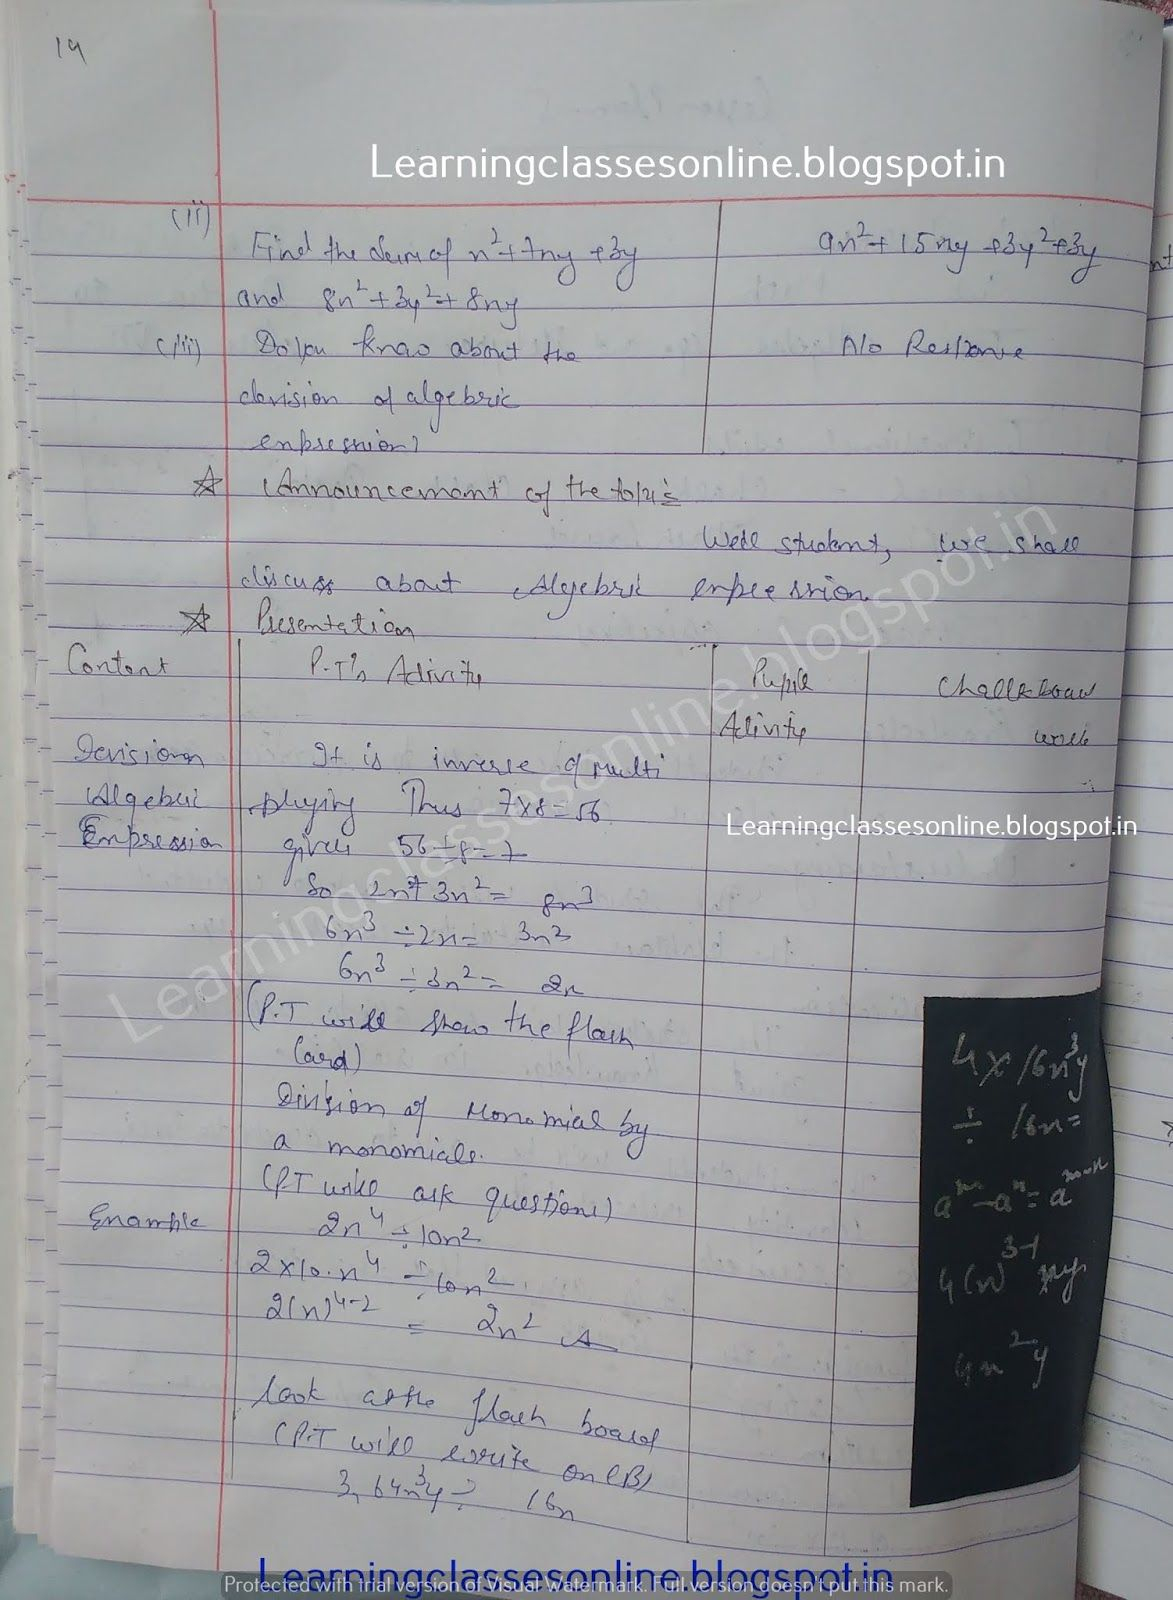 19
Learningclassesonline.blogspot.in
(ii)
Find the sum of n²+7ny+3y
9n²+15ny+3y²+3y
and 8n²+3y²+8ny
(iii) Do you knao about the
No Response
devision of algebric
enpression?
☆ Announcement of the topic
Well student, we shall
discuss about Algebric enpression
☆ Presentation
Content
P.T's Activity
Pupil
Activity
Chalkboard
work
Devision
Algebric
Enpression
It is inverse of multi
plying Thus 7×8=56
gives 56÷8=7
So 2n+3n²= 8n³
6n³ ÷2n= 3n²
6n³ ÷3n²= 2n
(P.T will show the flash
Card)
Division of Monomial by
a monomials.
(PT will ask questions)
Enample
2n⁴÷10n²
2×10·n⁴ ÷10n²
2(n)⁴⁻² = 2n²
look at the flash board
(P.T will write on CB)
3, 64n³y÷ 16n
4×16n³y
÷ 16n=
aᵐ-aⁿ=aᵐ⁻ⁿ
4(n)³⁻¹
4n²y
Learningclassesonline.blogspot.in
Learningclassesonline.blogspot.in
Learningclassesonline.blogspot.in
Protected with trial version of Visual Watermark. Full version doesn't put this mark.